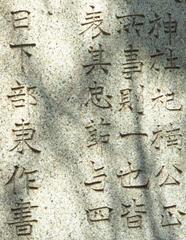 神社祀楠公正
所事則一也皆
表其忠節与四
日下部東作書